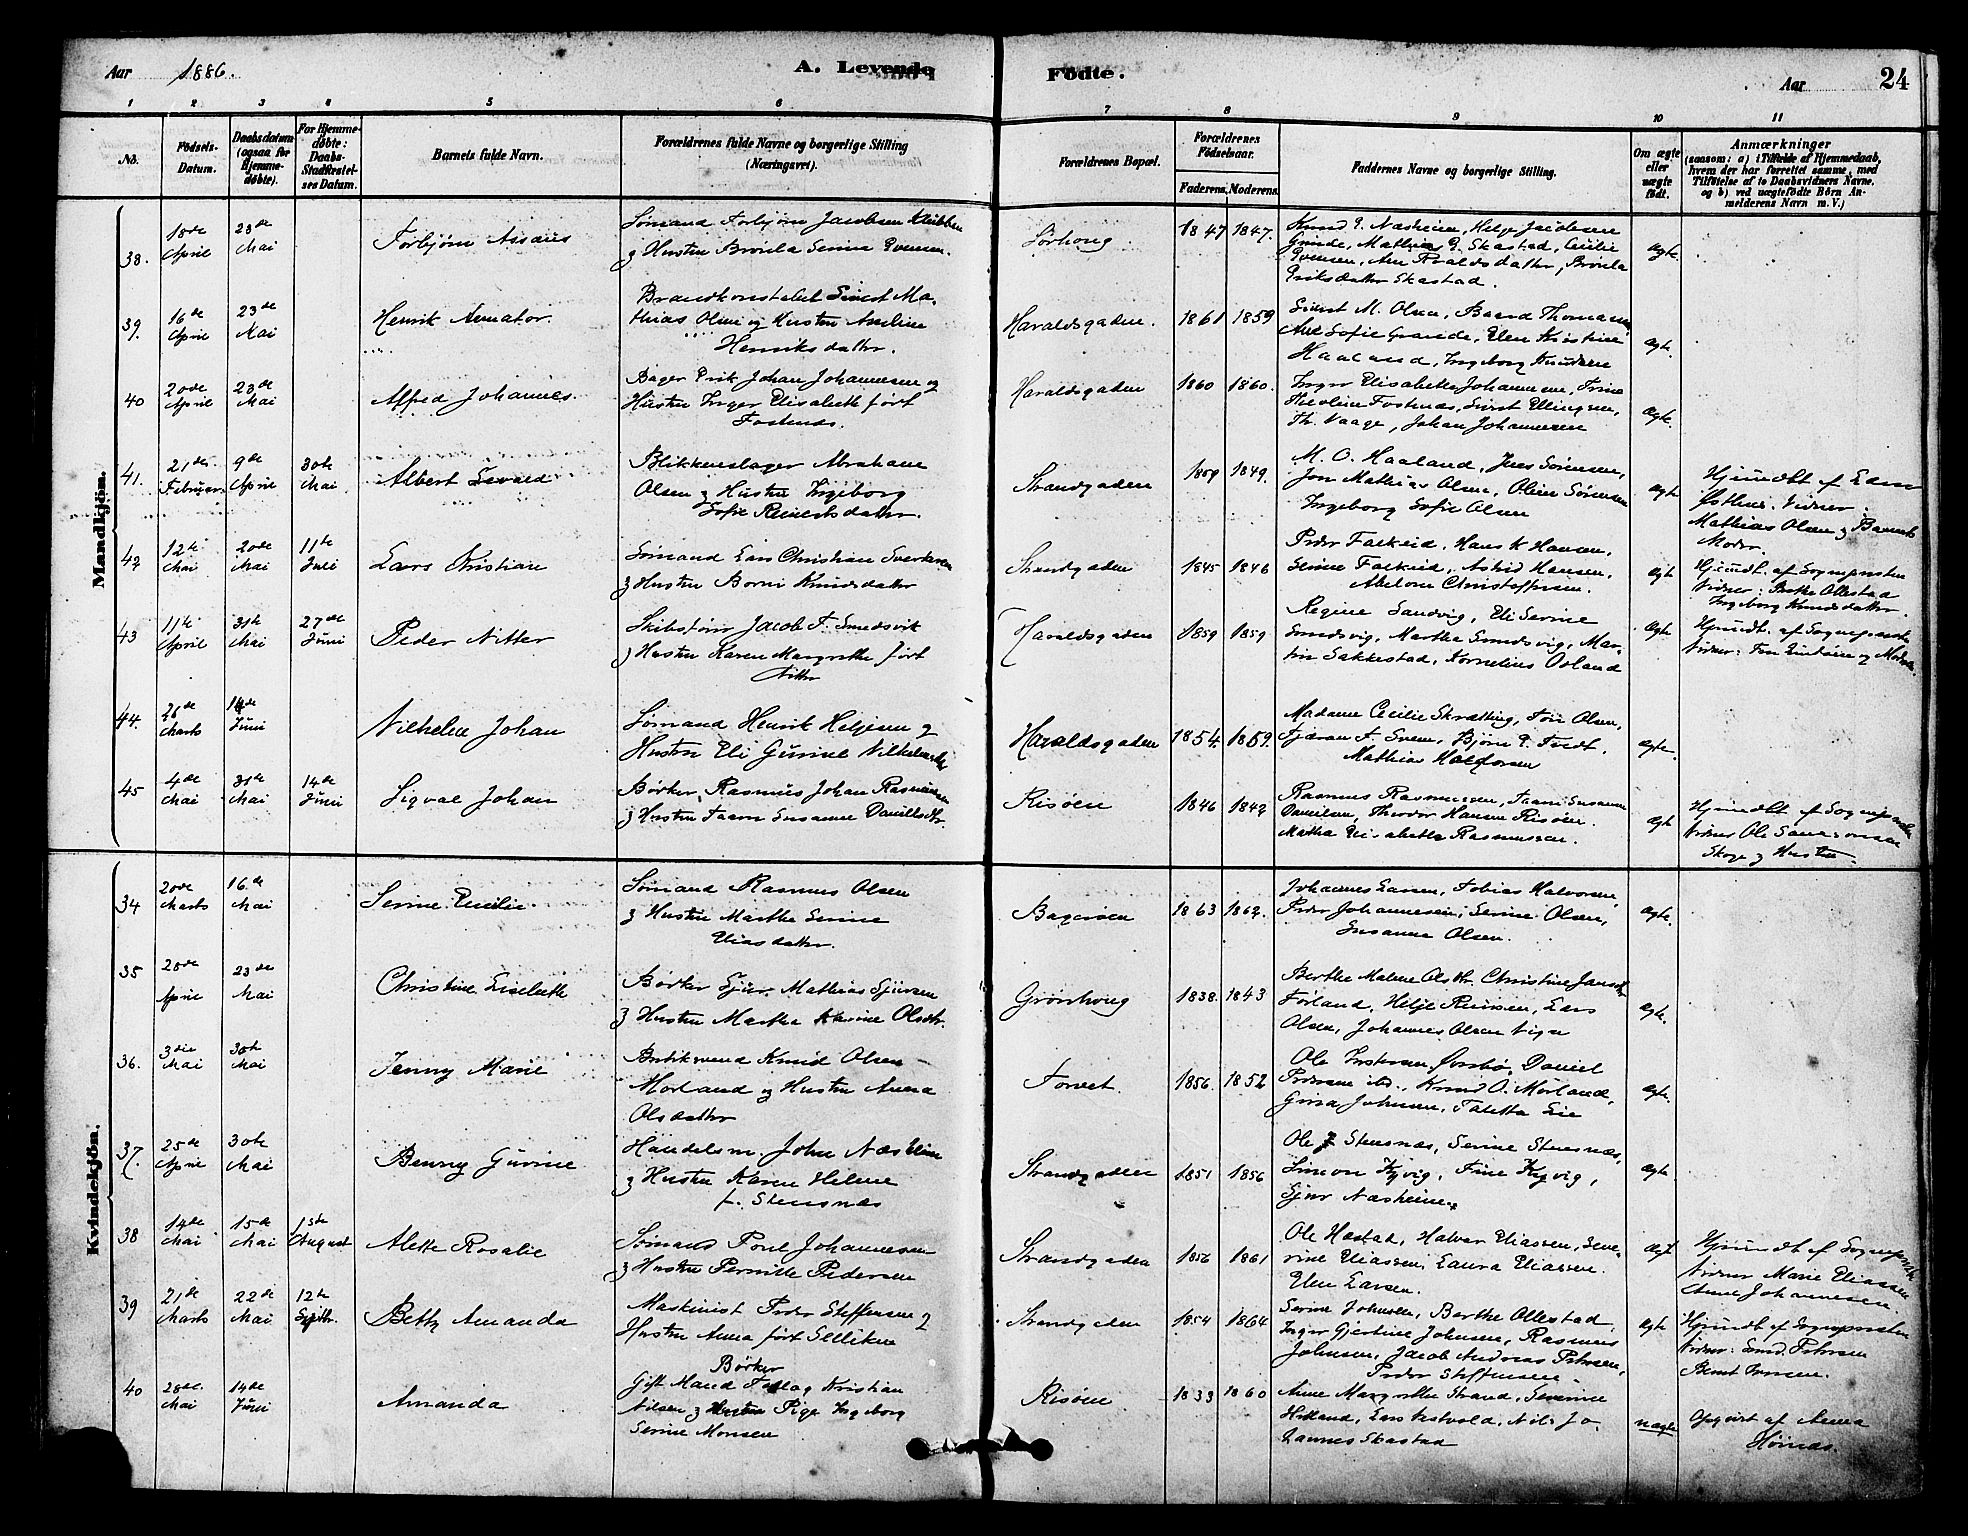 Aar 1886. A. Levende Födte. Aar 24
1 2 3 4 5 6 7 8 9 10 11
No. Födsels-Datum. Daabsdatum (ogsaa for Hjemmedöbte). For Hjemmedøbte: Daabs-Stadfæstelses Datum. Barnets fulde Navn. Forældrenes fulde Navne og borgerlige Stilling (Næringsvei). Forældrenes Bopæl. Forældrenes Födselsaar. Faderens. Moderens. Faddernes Navne og borgerlige Stilling. Om ægte eller uægte födt. Anmærkninger (saasom: a) i Tilfælde af Hjemmedaab, hvem der har forrettet samme, med Tilföielse af to Daabsvidners Navne, og b) ved uægtefödte Börn Anmelderens Navn m. V.)
Mandkjön.
38. 18de April 23de Mai Torbjørn Assaus Sømand Torbjørn Jacobsen
& Hustru Serine Svensen. Sørhoug 1847 1847. Knud E. Næsheim, Helje Jacobsen
Mathias E. Skastad, Cecilie
Eriksdatter Skastad. Ægte.
39. 16de April 23de Mai Henrik Amator. Brandkonstabel Sivert Mathias Olsen og Hustru Aseline
Henriksdatter. Haraldsgaden. 1861 1859 Sivert M. Olsen, Baard Thomasen,
Ane Sofie Grande, Elen Kristine
Haaland, Ingeborg Knudsen Ægte.
40 20de April 23de Mai Alfred Johannes. Bager Erik Johan Johannesen og
Hustru Inger Elisabeth født
Fostenæs. Haraldsgaden 1860 1860. Inger Elisabeth Johannesen, Trine
Fostenæs, Sivert Ellingsen,
Th. Vaage, Johan Johannesen Ægte.
41. 21de Februar 9de April 30te Mai Albert Sevald Blikkenslager Abraham
Olsen & Hustru Ingeborg
Sofie Reinertsdatter. Strandgaden 1859 1849. M. O. Haaland, Jens Sørensen,
Jon Mathias Olsen, Oline Sørensen
Ingeborg Sofie Olsen Ægte Hjemdøbt af Lars
Vidner:
Mathias Olsen & Barnets
Moder.
42 12te Mai 20de Mai 11te Juli Lars Kristian Sømand Lars Christian
& Hustru Knudsdatter Strandgaden 1845 1846 Peder Falkeid, Hans K. Hansen,
Serine Falkeid, Astrid Hansen,
Abelone Christoffersen. Ægte Hjemdt. af Sognepresten
Vidner: Ollestad
Ingeborg Knudsdatter.
43 11te April 31te Mai 27de Juni Peder Nitter Skibstømr Jacob T. Smedsvik
& Hustru Karen Margrethe født
Nitter Haraldsgaden 1859 1859 Regine Sandvig, Eli Serine
Smedsvig, Martha Smedsvig, Martin Sakkestad, Kornelius Osland Ægte Hjemdt. af Sognepresten
Vidner:
44. 26de Marts 14de Juni Vilhelm Johan Sømand Henrik Heljesen &
Hustru Eli Gurine Haraldsgaden 1854. 1859. Madame Cecilie Skrætting, Toni Olsen,
Bjørn E. Tvedt,
Mathias Haldorsen Ægte.
45 4de Mai 31te Mai 14de Juni Sigval Johan Bødker Rasmus Johan Rasmussen
& Hustru Susanne Danielsdtr. Risøen 1846 1842 Rasmus Rasmussen, Susanne
Danielsen, Theodor Hansen Risøen.
Martha Elisabeth Rasmussen. Ægte Hjemdøbt af Sognepresten
Vidner Ole
Skoge & Hustru.
Kvindekjön.
34 20de Marts 16de Mai Serine Cecilie Sømand Rasmus Olsen
& Hustru Martha Serine
Eliasdatter. Bagerøen 1863 1862. Johannes Larsen, Tobias Halvorsen,
Peder Johannesen, Serine Olsen,
Susanne Olsen. Ægte.
35 20de April 23de Mai Christine Liselette Bødker Sjur Mathias Sjursen
& Hustru Martha Karine Olsdtr. Grønhoug 1838. 1843 Berthe Malene Olsdtr. Christine Jansdtr
Førland, Helje Lars
Olsen, Johannes Olsen Ægte.
36. 3die Mai 30te Mai Jenny Marie Butiksvend Knud Olsen
Morland og Hustru Anna
Olsdatter Torvet. 1856. 1852 Ole Daniel
Pedersen ibd., Knud O. Mørland,
Gina Johnsen, Taletta Lie Ægte.
37. 25de April 30te Mai Benny Gurine Handelsm. John Næsheim
& Hustru Karen Helene
f. Stensnæs Strandgaden 1851 1856 Ole Stensnæs, Serine Stensnæs,
Simon Kyvig, Trine Kyvig,
Sjur Næsheim. Ægte
38 14de Mai 15de Mai 1ste August Alette Rosalie Sømand Poul Johannesen
& Hustru Pernille Pedersen Strandgaden 1856 1861 Ole Høstad, Halvor Eliassen, Severine Eliassen, Laura Eliassen.
Elen Larsen. Ægt Hjemdøbt af Sognepresten
Vidner Marie Eliassen
Anne Johannesen.
39 21de Marts 22de Mai 12te Septbr. Betty Amanda Maskinist Peder Steffensen &
Hustru Anna født Selliken Strandgaden 1854 1864 Serine Johnsen, Berthe Ollestad,
Inger Gjertine Johnsen, Rasmus
Johnsen, Jacob Andreas Petersen,
Peder Steffensen. Ægte Hjemdøbt af Sognepresten
Vidner: Petersen
40 28de Mai 14de Juni Amanda Bødker
Gift Mand Kristian
Nilsen & Pige Ingeborg
Serine Monsen Risøen 1833 1860 Anne Margrethe Strand, Severine
Hetland, Nils Johannes Skastad uægte Opgivet af Anna